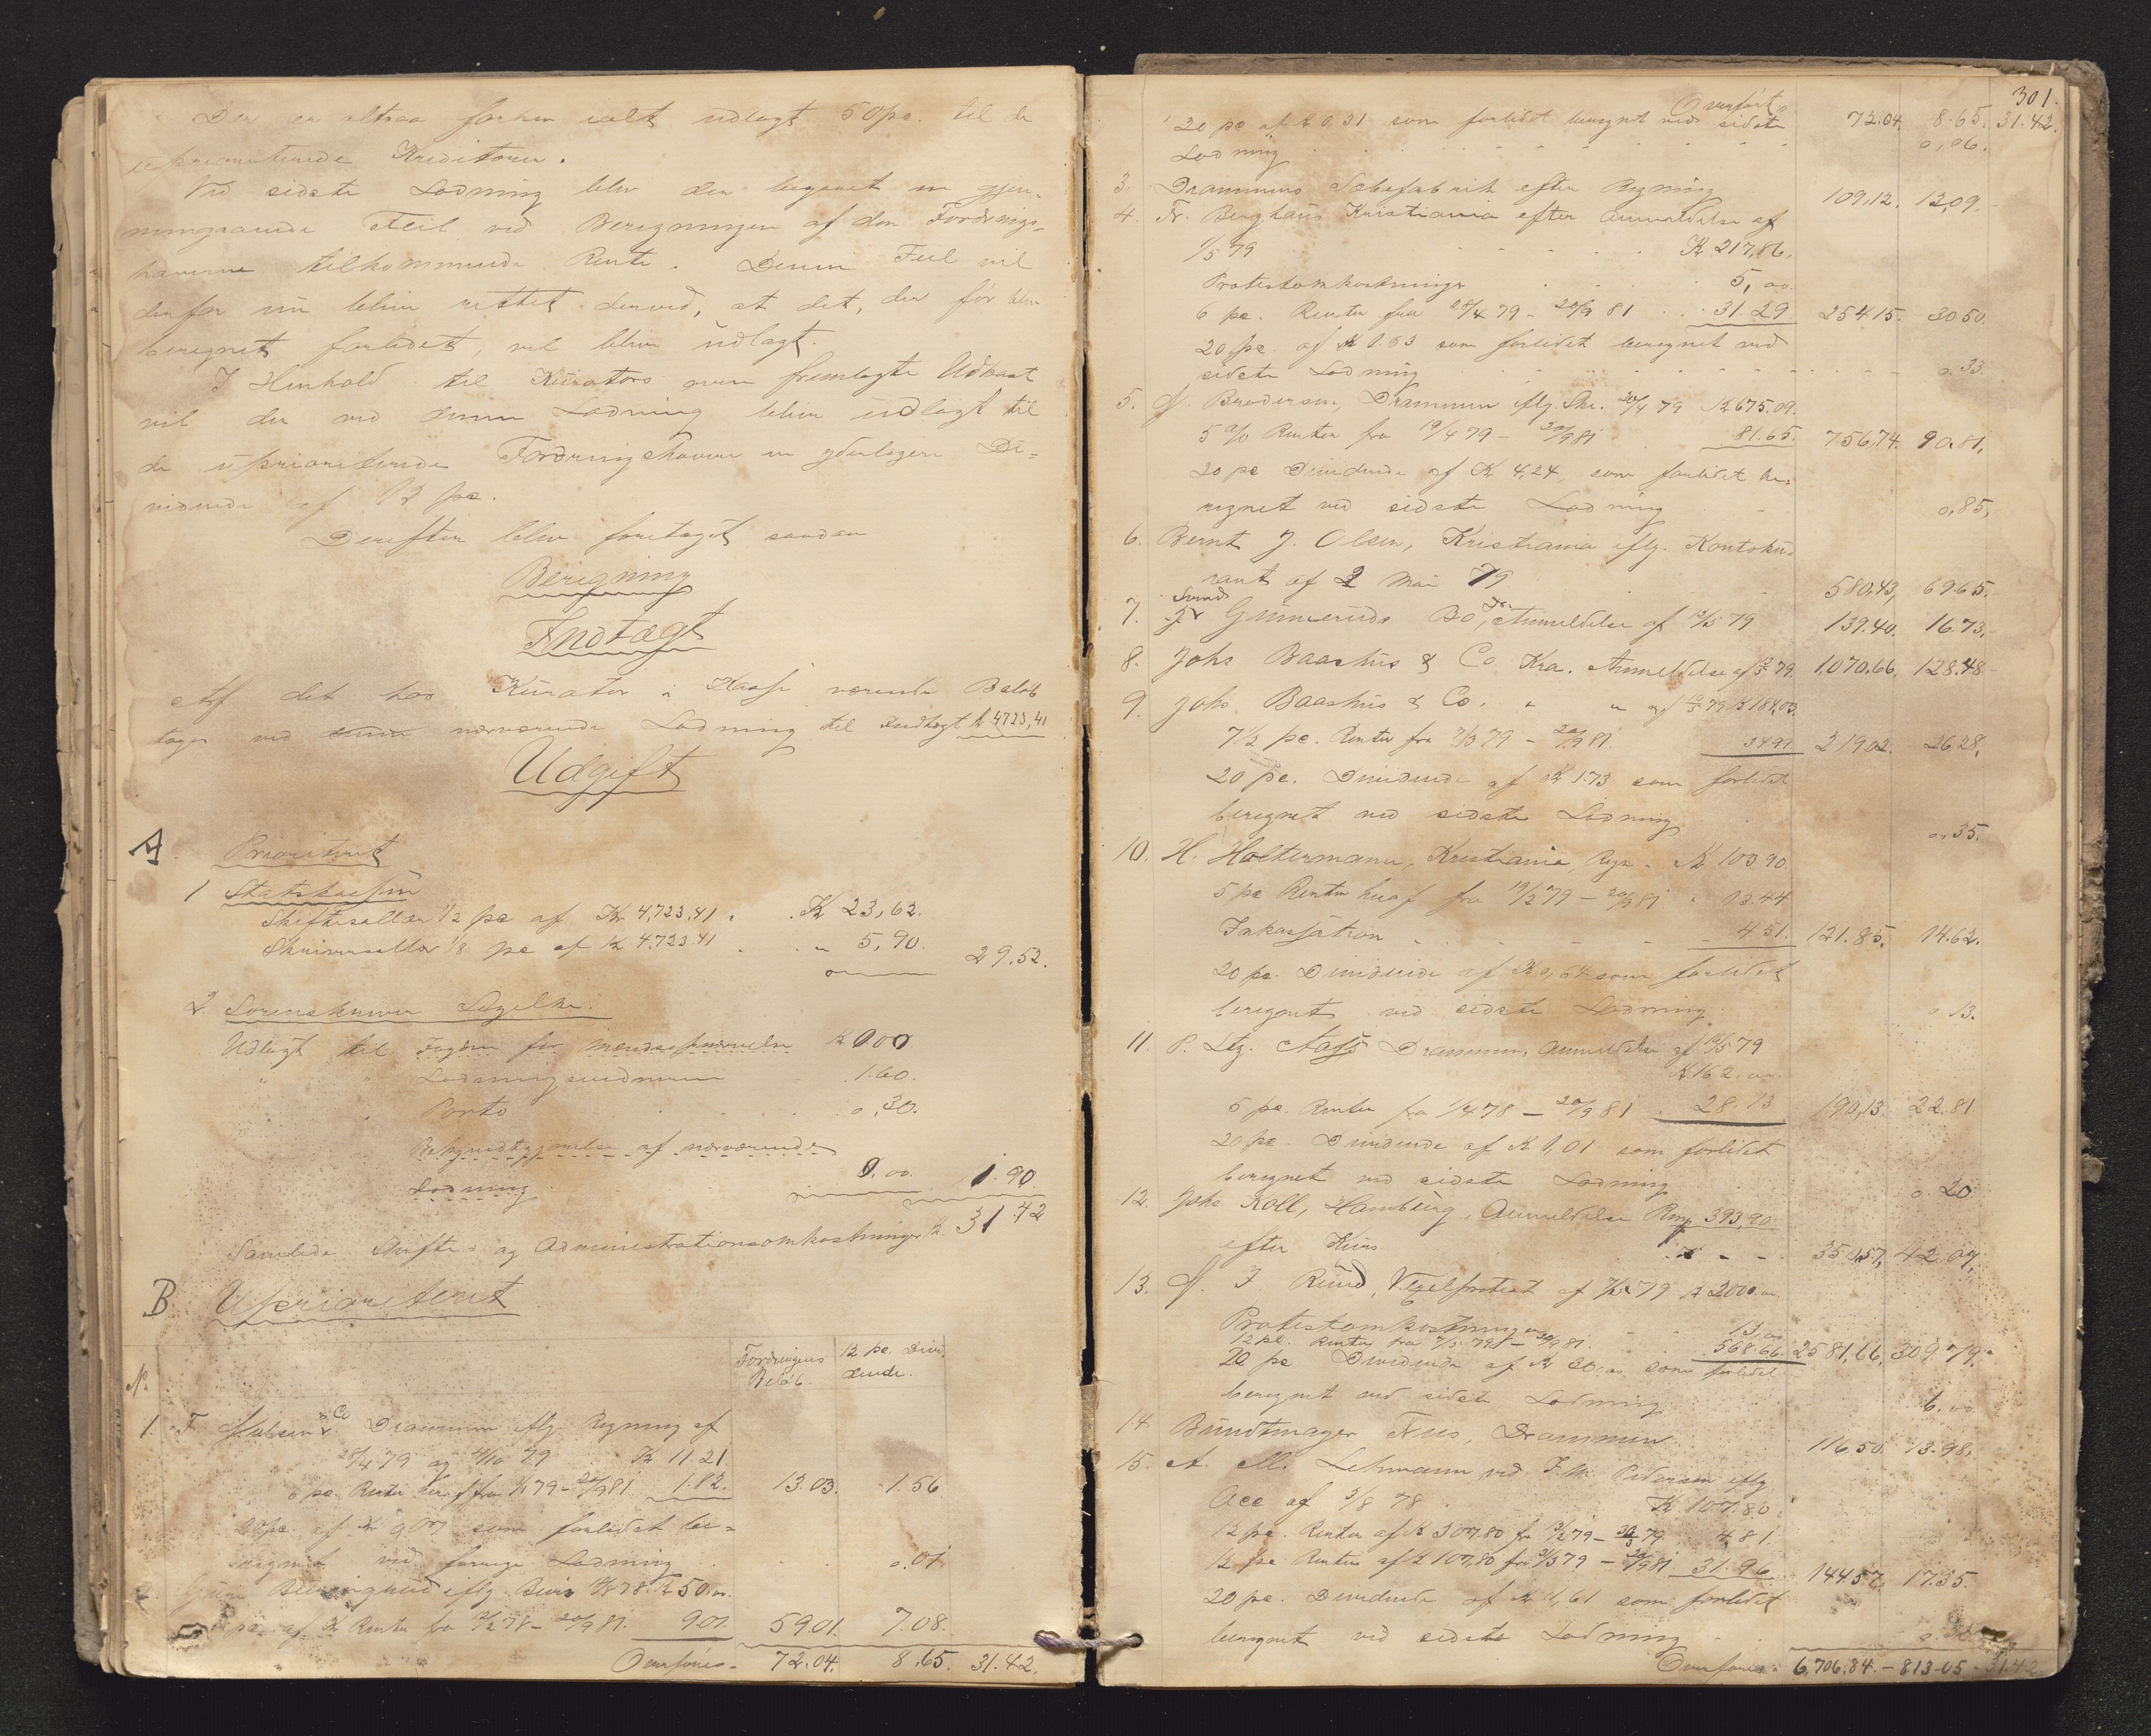 Der er altsaa forhen ialt udlagt 50 pc. til de
uprioriterede Kreditorer.
Ved sidste Lodning blev der begaaet en gjen-
nemgaaende Feil ved Beregningen af den Fordrings-
haverne tilkommende Rente. Denne Feil vil
derfor nu blive rettet derved, at det, der før blev
beregnet forlidet, vil blive udlagt.
I Henhold til Kurators fremlagte Udkast
vil der ved denne Lodning blive udlagt til
de uprioriterede Fordringshavere en yderligere Di-
vidende af 12 pc.
Derefter blev foretaget saadan
Beregning
Indtægt
Af det hos Kurator i Kasse værende Beløb
tages ved nærværende Lodning til Indtægt K 4723,41
Udgift
A. Prioriteret
1 Statskassen
Skiftesallær 1/2 pc af Kr 4,723,41 . . K 23,62.
Skriversallær 1/8 pc af K 4,723,41 . . „ 5,90. 29,52.
2. Sorenskriver
Udlagt til Fogden for Mændsopnævnelse K 0,00
" " Lodningsmændene . 1.60.
" Porto . . . 0,30.
af nærværende
Lodning 0,00. 1.90
Samlede Skifte- og Administrationsomkostninger K. 31.42
B. Uprioriteret
No. Fordringens Beløb. 12 pc. Divi- dende.
1. F. & Co Drammen iflg. Regning af
28/4 79 og 4/10 79 . K 11.21
6 pc. Renter heraf fra 1/1 79 - 20/9 81 1.82. 13.03. 1.56
20 pc. af Kr 0,07 som forlidet be-
regnet ved forrige Lodning . . . 0.01
2. iflg. Bevis 78. K 50,00.
pc. af K Renter fra 2/2 78 - 20/9 81. 9.01 59.01. 7.08.
Overføres. 72.04. 8.65. 31.42.
301.
Overført 72.04. 8.65. 31.42.
20 pc af K 0,31 som forlidet beregnet ved sidste
Lodning . . . . . 0,06.
3. Drammens Sæbefabrik efter Regning 109,12. 13,09.
4. Fr. Berghaus Kristiania efter Anmeldelse af
1/5 79 . . . . K 217,86.
Protestomkostninger . . . 5,00
6 pc. Renter fra 28/4 79 - 20/9 81 . . 31.29 254.15. 30.50.
20 pc. af K 1.63 som forlidet beregnet ved
sidste Lodning . . . . 0.33.
5. M. Brodersen, Drammen iflg. Skr. 20/4 79 K 675.09.
5 % Renter fra 19/4 79 - 20/9 81 81.65. 756,74. 90.81.
20 pc Dividende af K 4,24, som forlidet be-
regnet ved sidste Lodning 0,85.
6. Bernt J. Olsen, Kristiania iflg. Kontoku-
rant af 2 Mai 79 580,43, 69.65.
7. Gunneruds Bo, Anmeldelse af 79 139.40. 16.73.
8. Johs Baashus & Co Kra. Anmeldelse af 79. 1,070.66. 128.48.
9. Johs Baashus & Co. " " af 79 K 184,03.
7 1/2 pc. Renter fra 79 - 20/9 81. 34.99 219.02. 26.28.
20 pc. Dividende af K 1.73 som forlidet
beregnet ved sidste Lodning 0,35.
10. H. Holtermann, Kristiania, Regn. K 103.90.
5 pc Renter heraf fra 19/2 79 - 20/9 81 . 13.44
Inkassation . . . . 4.51. 121.85. 14.62.
20 pc. Dividende af K 0,64 som forlidet
beregnet ved sidste Lodning 0.13.
11. P. Ltz. Aass Drammen, Anmeldelse af 79
K 162.00
5 pc. Renter fra 1/4 78 - 20/9 81 . 28.13 190,13. 22.81.
20 pc. Dividende af K 1,01 som forlidet
beregnet ved sidste Lodning 0.20
12. Johs Koll, Hamburg, Anmeldelse Rm. 393,90.
efter Kurs 350,57, 42.07.
13. M. J. Ruud, Vexelprotest af 79 K 2000.00
Protestomkostninger . . 13,00
12 pc. Renter fra 7/5 79 - 20/9 81 . 568.66. 2581,66. 309.79.
20 pc Dividende af K 30.00 som forlidet
beregnet ved sidste Lodning 6.00
14. Bundtmager Friis, Drammen 116.50. 13.98.
15. A. M. Lehmann ved Pedersen iflg
Acc af 5/8 78 K 107.80.
12 pc. Renter af K 307.80 fra 79 - 79 . 4,81.
12 pc Renter af K 107,80 fra 79 - 20/9 81 31.96. 144.57. 17.35.
20 pc. Dividende af K 1,61 som forlidet
beregnet ved sidste Lodning
Overføres. 6,706.84. - 813.05 - 31.42